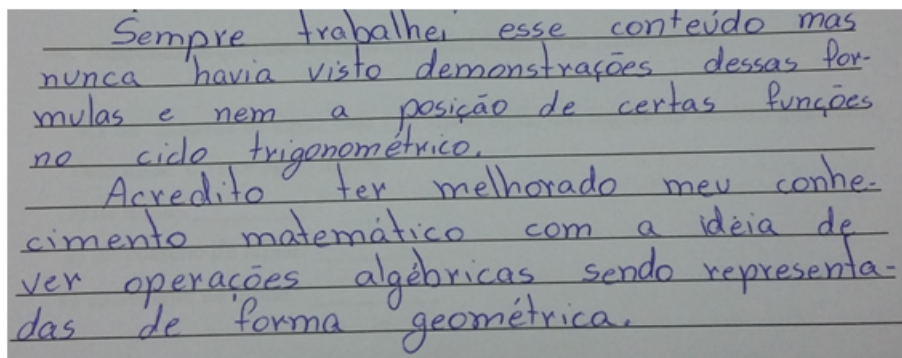 Sempre trabalhei esse conteúdo mas
nunca havia visto demonstrações dessas for-
mulas e nem a posição de certas funções
no ciclo trigonométrico.
Acredito ter melhorado meu conhe-
cimento matemático com a idéia de
ver operações algébricas sendo representa-
das de forma geométrica.